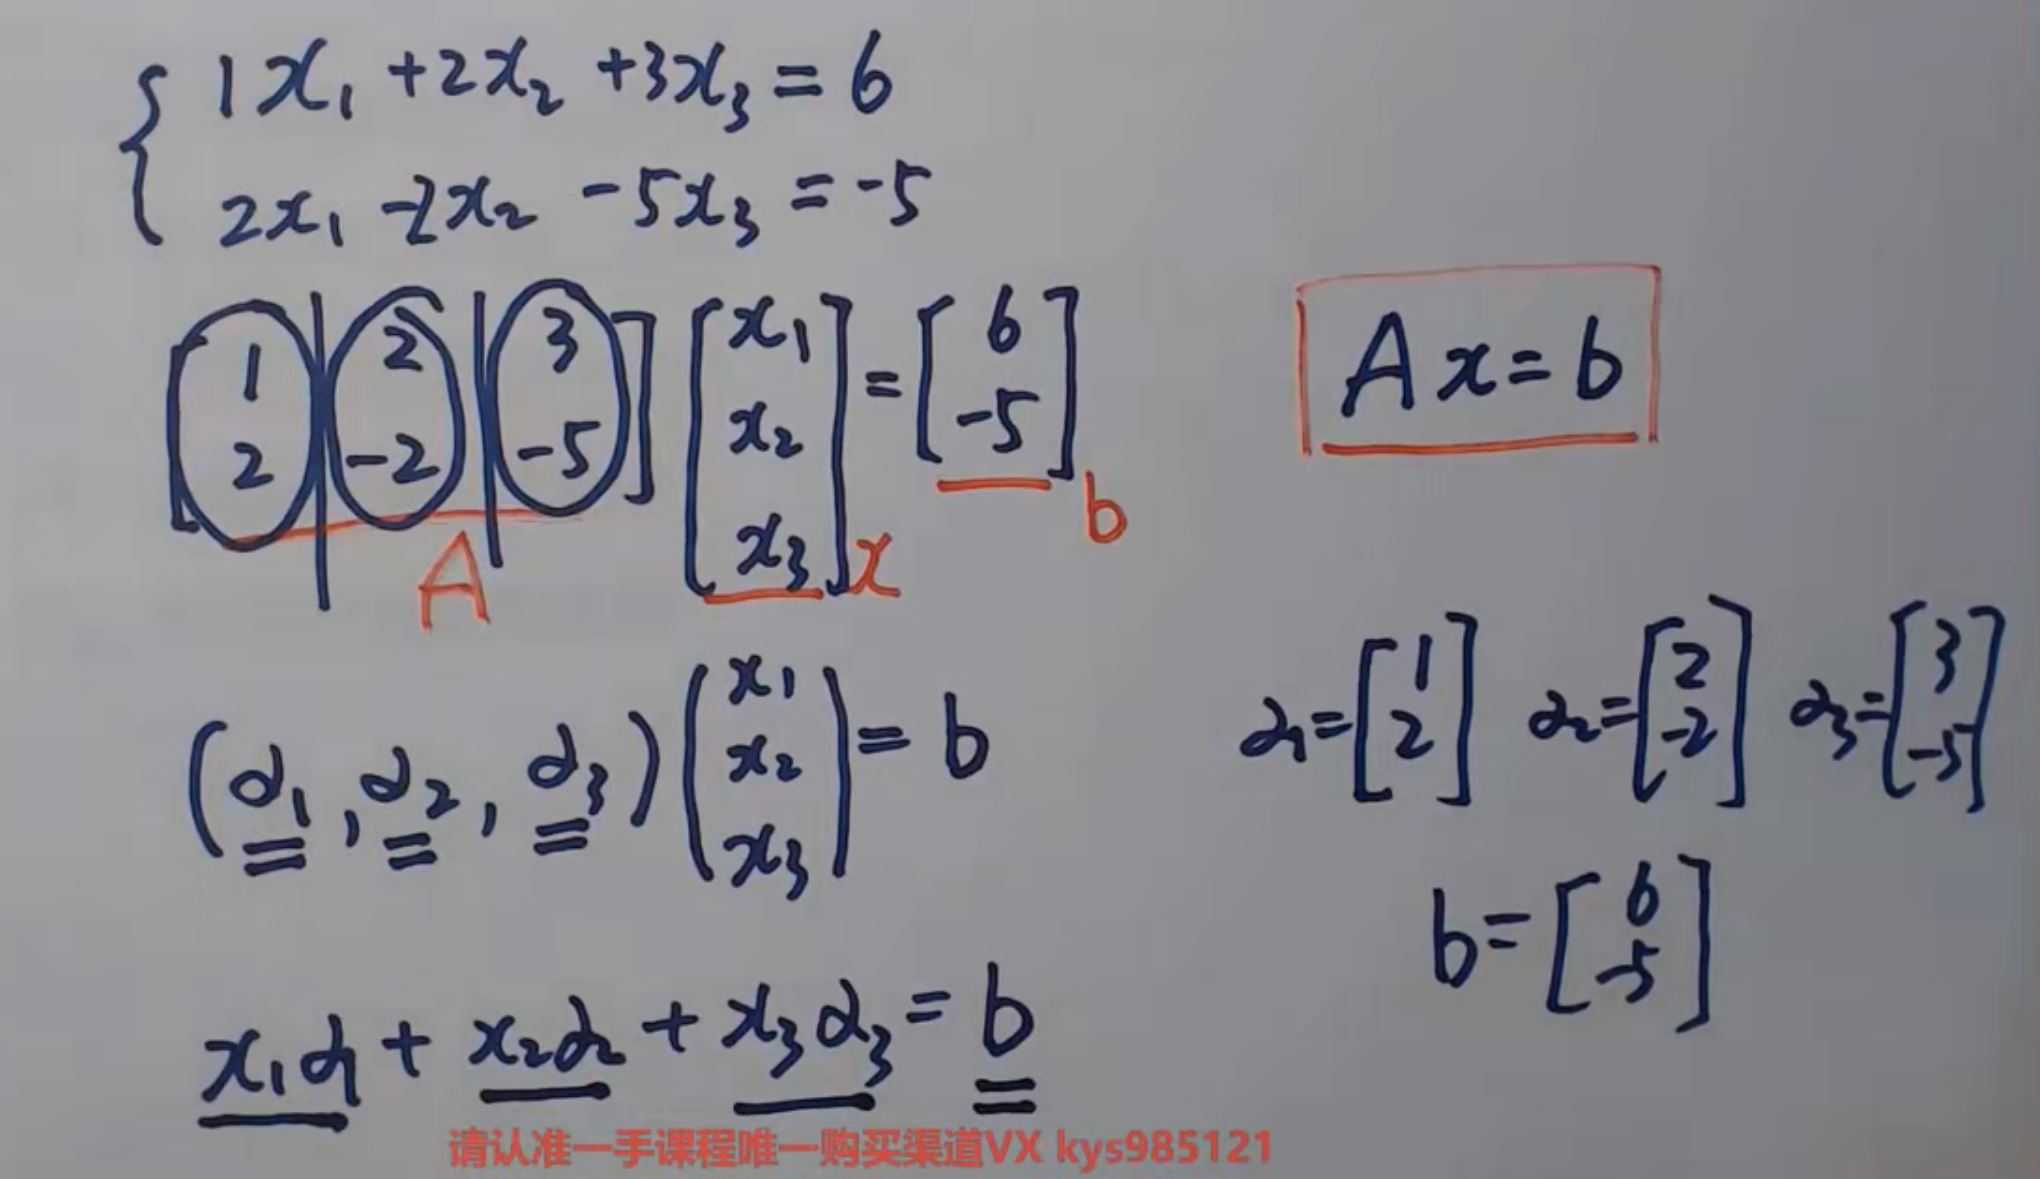 1x₁ +2x₂ +3x₃ = 6
2x₁ -2x₂ -5x₃ = -5
[1 2 3] [x₁] = [6]
2 -2 -5 x₂ -5
x₃ x b
A
Ax = b
(α₁, α₂, α₃) (x₁ x₂ x₃) = b
α₁ = [1 2] α₂ = [2 -2] α₃ = [3 -5]
b = [6 -5]
x₁α₁ + x₂α₂ + x₃α₃ = b
请认准一手课程唯一购买渠道VX kys985121